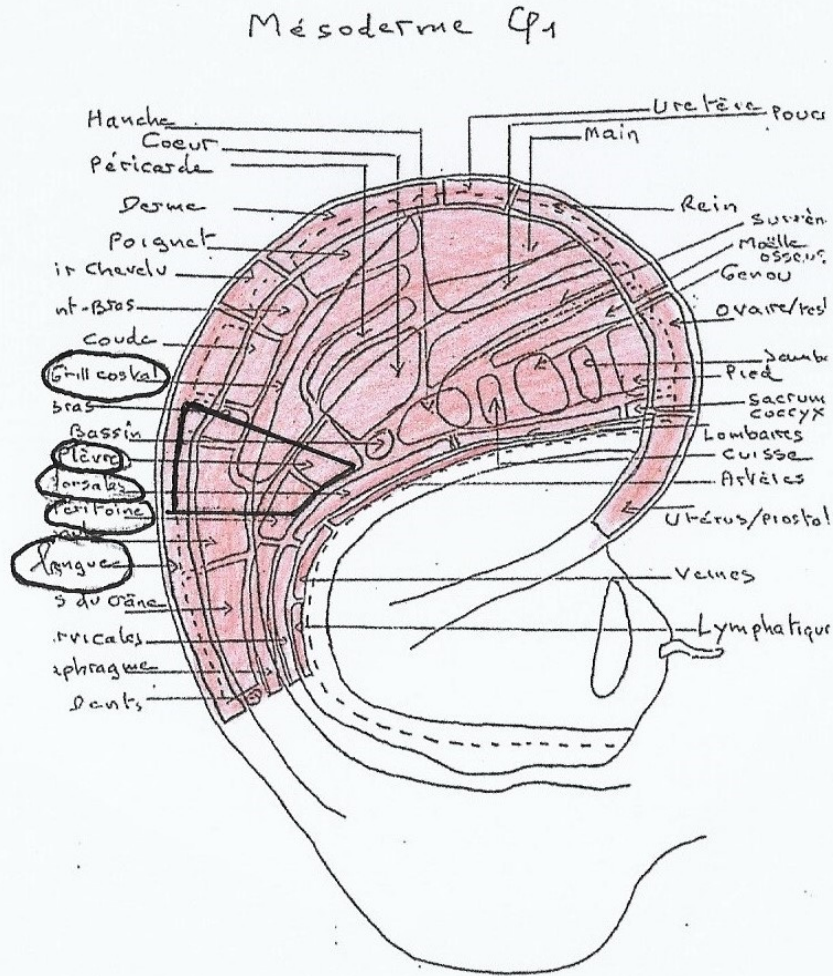 Mésoderme φ1
Hanche
Coeur
Péricarde
Derme
Poignet
ir Chevelu
nt-Bras
Coude
Grill costal
Bras
Bassin
Plèvre
Dorsales
Péritoine
s du Crâne
rvicales
aphragme
Dents
Uretère
Pouce
Main
Rein
Surrén
Moëlle
osseus
Genou
Ovaire/test
Jambe
Pied
Sacrum
Coccyx
Lombaires
Cuisse
Artères
Utérus/prostat
Veines
Lymphatique